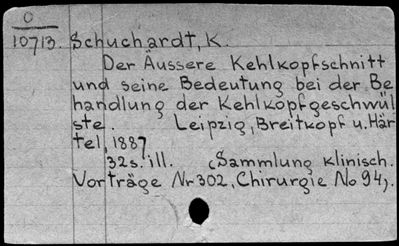 O
10713. Schuchardt, K.
Der Äussere Kehlkopfschnitt
und seine Bedeutung bei der Be
handlung der Kehlkopfgeschwül
ste. Leipzig, Breitkopf u. Här
tel, 1887
32s. ill. (Sammlung klinisch.
Vorträge Nr 302, Chirurgie No 94).